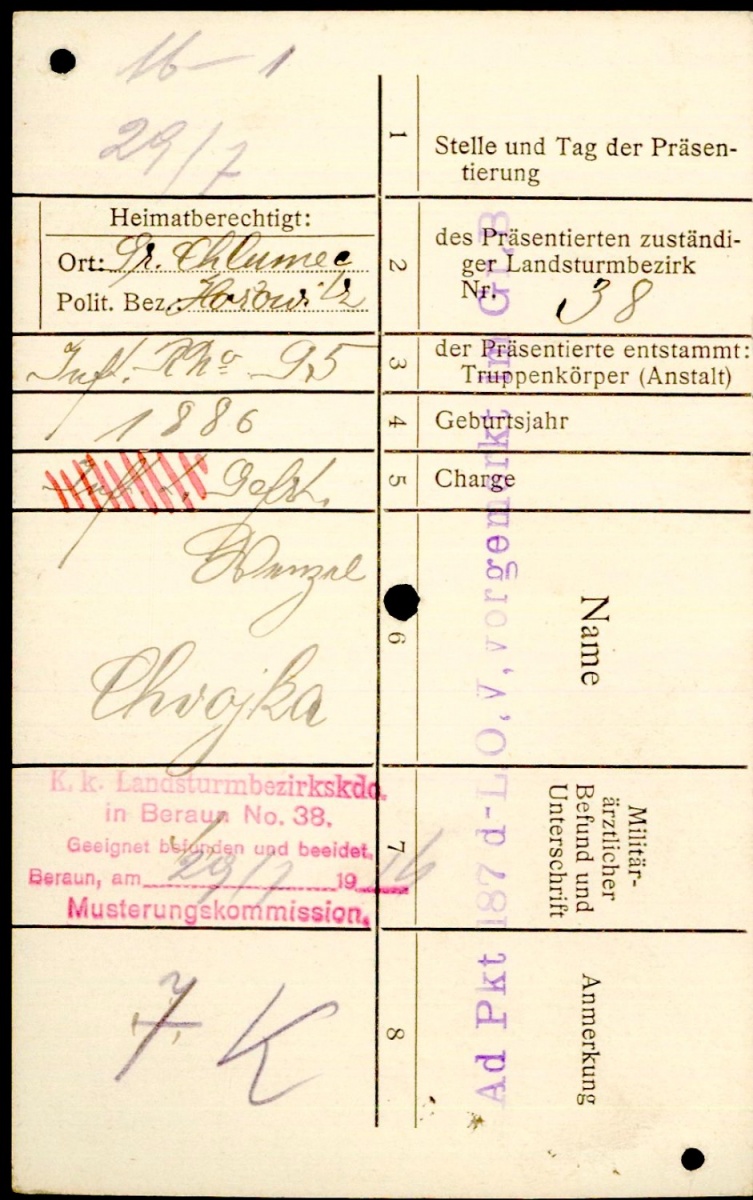 16 – 1
29/7
1
Stelle und Tag der Präsen-
tierung
Heimatberechtigt:
Ort: Gr. Chlumec
Polit. Bez.: Horowitz
2
des Präsentierten zuständi-
ger Landsturmbezirk
Nr. 38
Inft. 95
3
der Präsentierte entstammt:
Truppenkörper (Anstalt)
1886
4
Geburtsjahr
Gefrt.
5
Charge
Wenzel
Chvojka
6
Name
K. k. Landsturmbezirkskdo.
in Beraun No. 38.
Geeignet befunden und beeidet.
Beraun, am 29/7 1916
Musterungskommission.
7
Militär-
ärztlicher
Befund und
Unterschrift
7 K
8
Anmerkung
Ad Pkt 187 d-L.O,V, vorgemerkt im G